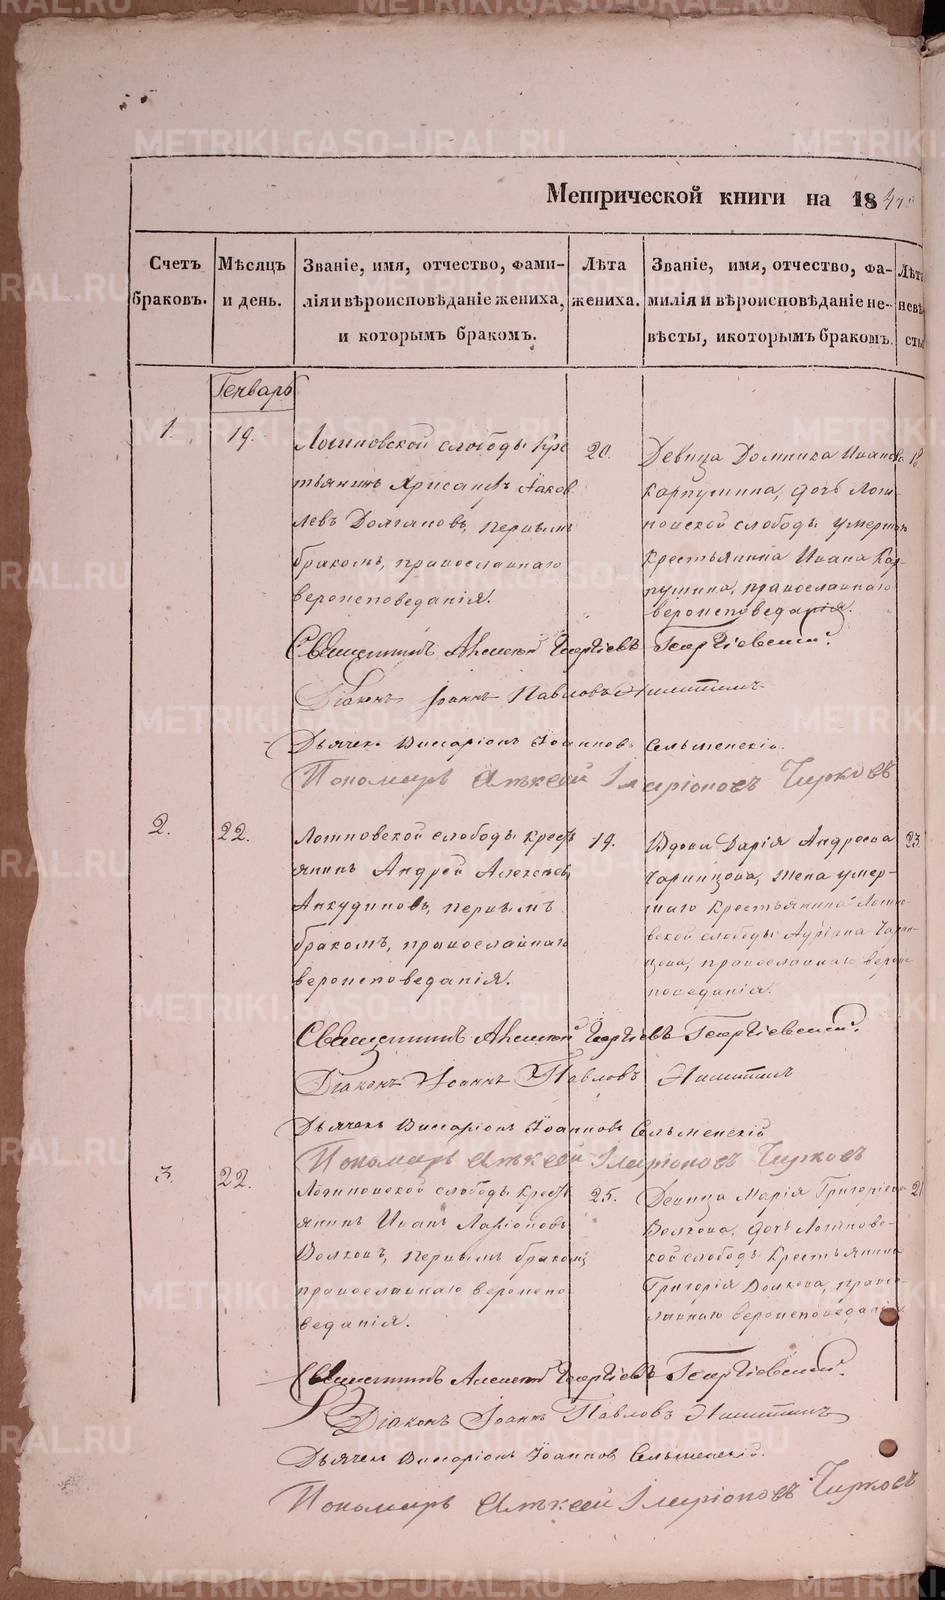 Метрической книги на 184
Счетъ браковъ.
Мѣсяцъ и день.
Званіе, имя, отчество, фами-
лія и вѣроисповѣданіе жениха,
и которымъ бракомъ.
Лѣта
жениха.
Званіе, имя, отчество, фа-
милія и вѣроисповѣданіе не-
вѣсты, и которымъ бракомъ.
Лѣта
невѣ-
сты
Генварь
1.
19.
слободы Кре
стьянинъ Яков
левъ Долгановъ, первымъ
бракомъ, православнаго
вероисповеданія.
20.
Девица Домника Иванова
Карпушина, дочь
слободы умерш
крестьянина Ивана Кар-
пушина, православнаго
вероисповеданія.
18
Священникъ Алексей Георгіевъ Георгіевскій.
Діаконъ Іоаннъ Павловъ Никитинъ
Дьячекъ Виссаріонъ Іоанновъ Сельменскій.
Пономарь Алексей Иларіоновъ Чирковъ
2.
22.
слободы крест
янинъ Андрей Алексеев
Анкудиновъ, первымъ
бракомъ, православнаго
вероисповеданія.
19.
Вдова Дарія Андреева
жена умер-
шаго Крестьянина
слободы
православнаго вероис
поведанія.
23.
Священникъ Алексей Георгіевъ Георгіевскій.
Діаконъ Іоаннъ Павловъ Никитинъ
Дьячекъ Виссаріонъ Іоанновъ Сельменскій
Пономарь Алексей Иларіоновъ Чирковъ
3.
22.
слободы Крест
янинъ Иванъ Ларіоновъ
Волковъ, первымъ бракомъ,
православнаго вероиспо
веданія.
25.
Девица Марія Григоріева
Волкова, дочь
слободы Крестьянина
Григорія Волкова, право-
славнаго вероисповеданія
21
Священникъ Алексей Георгіевъ Георгіевскій.
Діаконъ Іоаннъ Павловъ Никитинъ
Дьячекъ Виссаріонъ Іоаннов Сельменскій.
Пономарь Алексей Иларіоновъ Чирковъ
METRIKI.GASO-URAL.RU